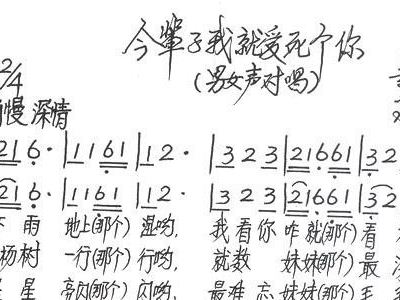 今辈子我就爱死个你
(男女声对唱)
2/4
慢 深情
21 6· | 11 61 | 12· | 3 2 3 | 21661 | 32
21 6· | 11 61 | 12· | 3 2 3 | 21661 | 32
雨 地上(那个) 湿哟, 我 看 你 咋 就(那个) 看
杨树 一行(那个) 行哟, 就数 妹妹(那个) 最
星 亮闪(那个) 闪哟, 最难忘 妹妹(那个)